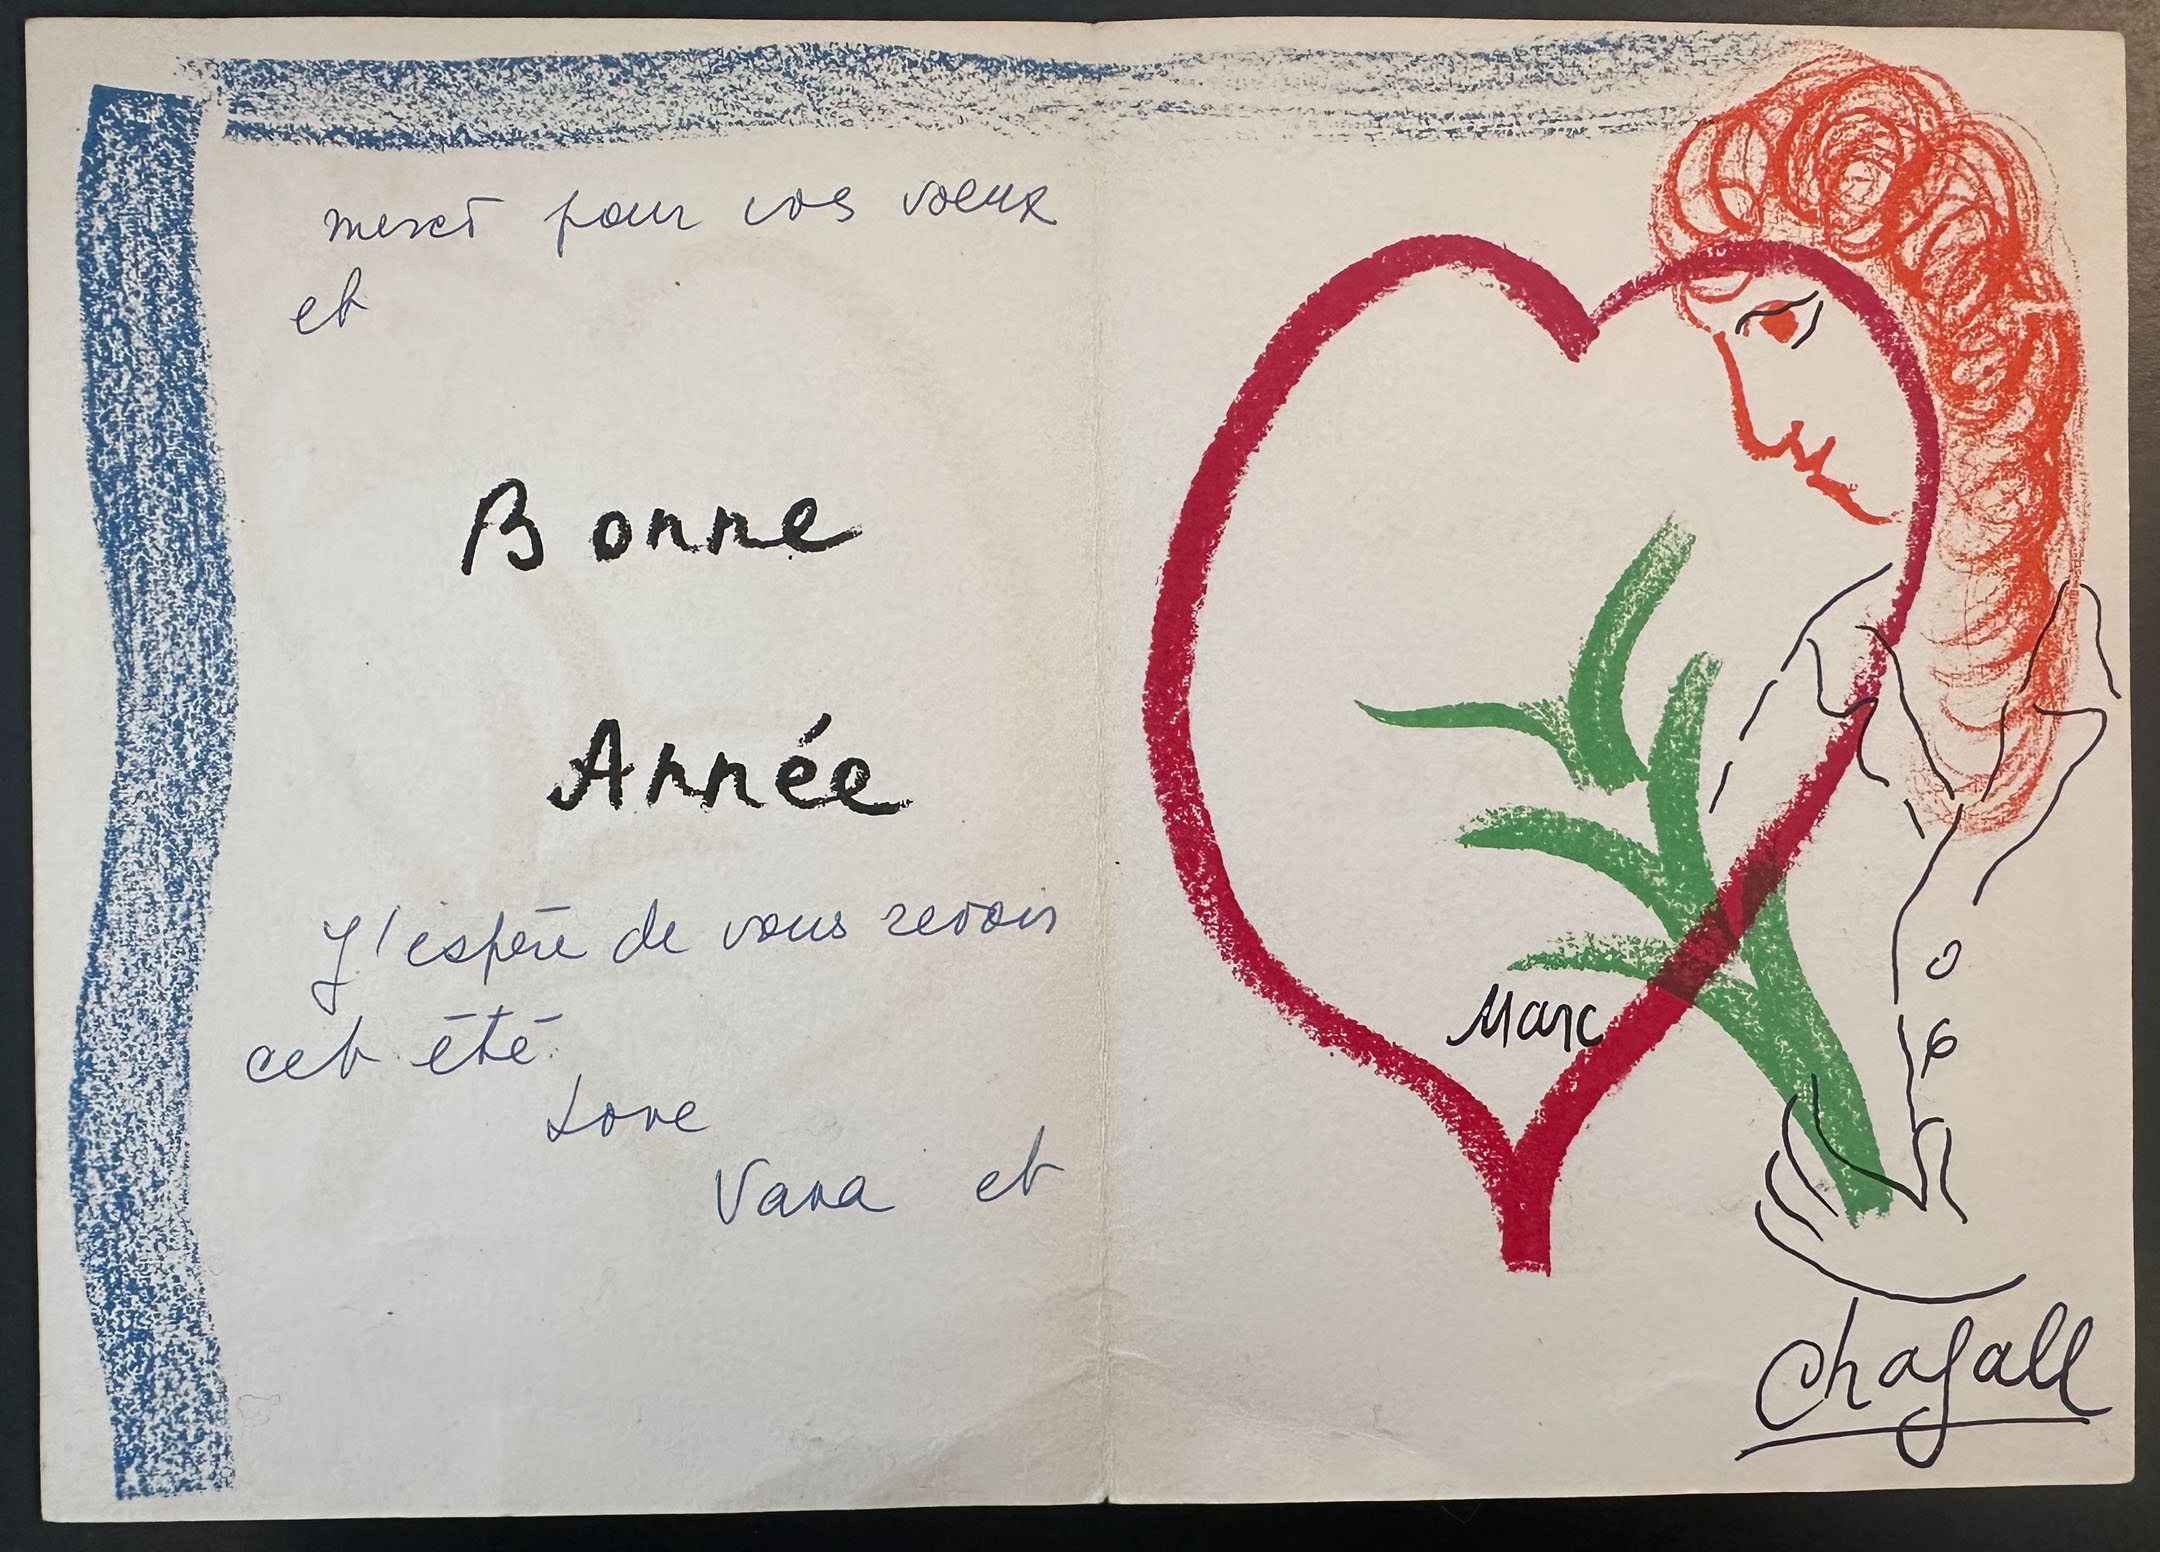 merci pour vos voeux
et
Bonne
Année
J'espère de vous revoir
cet été.
Love
Vava et
Marc
Chagall